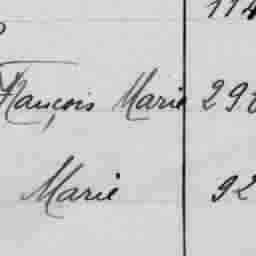 114
François Marie 290
Marie 92